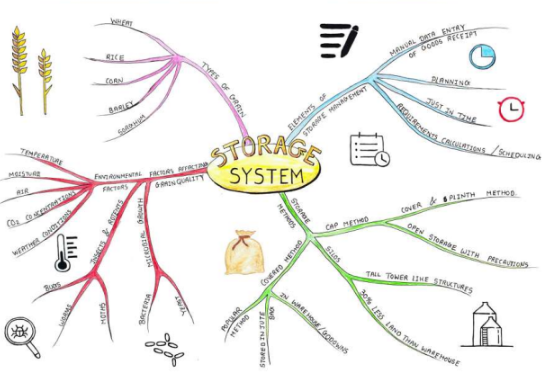 STORAGE
SYSTEM
TYPES OF GRAIN
WHEAT
RICE
CORN
BARLEY
SORGHUM
ELEMENTS OF
STORAGE MANAGEMENT
MANUAL DATA ENTRY
OF GOODS RECEIPT
PLANNING
JUST IN TIME
REQUIREMENTS CALCULATIONS / SCHEDULING
STORAGE
METHODS
CAP METHOD
COVER & PLINTH METHOD
OPEN STORAGE WITH PRECAUTIONS
SILOS
TALL TOWER LIKE STRUCTURES
30% LESS LAND THAN WAREHOUSE
COVERED METHOD
IN WAREHOUSE/GODOWNS
STORED IN JUTE
BAG
POPULAR
METHOD
FACTORS AFFECTING
GRAIN QUALITY
ENVIRONMENTAL
FACTORS
TEMPERATURE
MOISTURE
AIR
CO2 CONCENTRATIONS
WEATHER CONDITIONS
INSECTS & RODENTS
BUGS
WORMS
MOTHS
MICROBIAL GROWTH
BACTERIA
YEAST